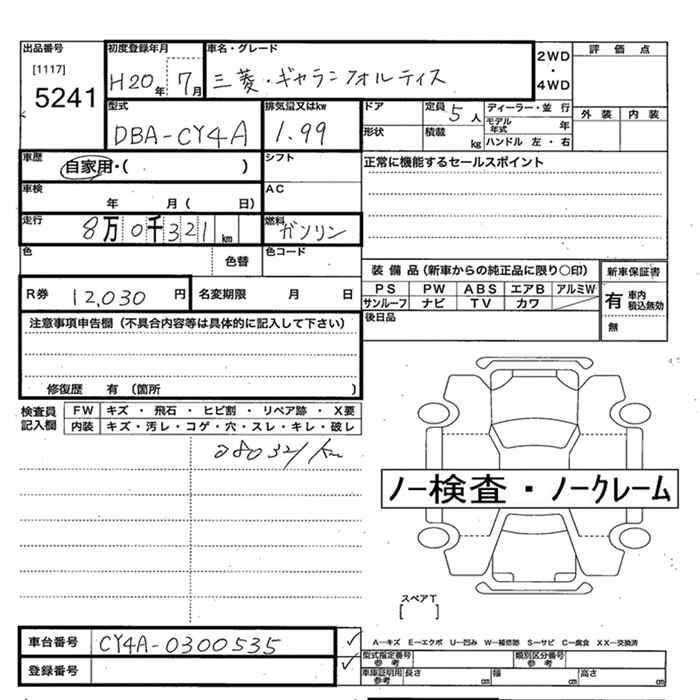 出品番号 初度登録年月 車名・グレード 2WD ・ 4WD 評価点
[1117]
5241 H20年 7月 三菱・ギャランフォルティス
外装 内装
型式 排気量又はkw ドア 定員 5人 ディーラー・並行
DBA-CY4A 1.99 形状 積載 kg モデル年式 年
ハンドル 左・右
車歴 自家用・( ) シフト 正常に機能するセールスポイント
車検 年 月( 日) AC
走行 8万0千321km 燃料 ガソリン
色 色替 色コード
装備品(新車からの純正品に限り○印) 新車保証書
R券 12,030円 名変期限 月 日 PS PW ABS エアB アルミW 有 車内積込無効
サンルーフ ナビ TV カワ
注意事項申告欄(不具合内容等は具体的に記入して下さい) 後日品 無
修復歴 有(箇所 )
検査員記入欄 FW キズ・飛石・ヒビ割・リペア跡・X要
内装 キズ・汚レ・コゲ・穴・スレ・キレ・破レ
ノー検査・ノークレーム
スペアT
[ ]
車台番号 CY4A-0300535
A—キズ E—エクボ U—凹み W—補修跡 S—サビ C—腐食 XX—交換済
登録番号 型式指定番号 参考 類別区分番号 参考
車庫証明用 参考 長さ cm 幅 cm 高さ cm